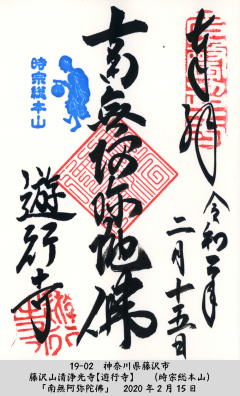 奉拝
令和二年
二月十五日
南無阿弥陀佛
時宗総本山
遊行寺
19-02　神奈川県藤沢市
藤沢山清浄光寺【遊行寺】　（時宗総本山）
「南無阿弥陀佛」　2020年2月15日